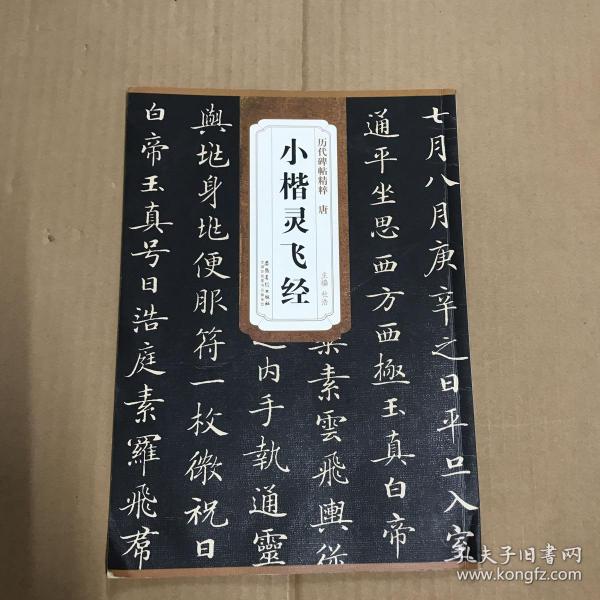 历代碑帖精粹 唐
小楷灵飞经
主编 杜浩
七月八月庚辛之日平旦入室
通平坐思西方西極玉真白帝
素雲飛輿從
内手執通靈
與地身地便服符一枚微祝日
白帝玉真号日浩庭素羅飛帬
孔夫子旧书网
www.kongfz.com